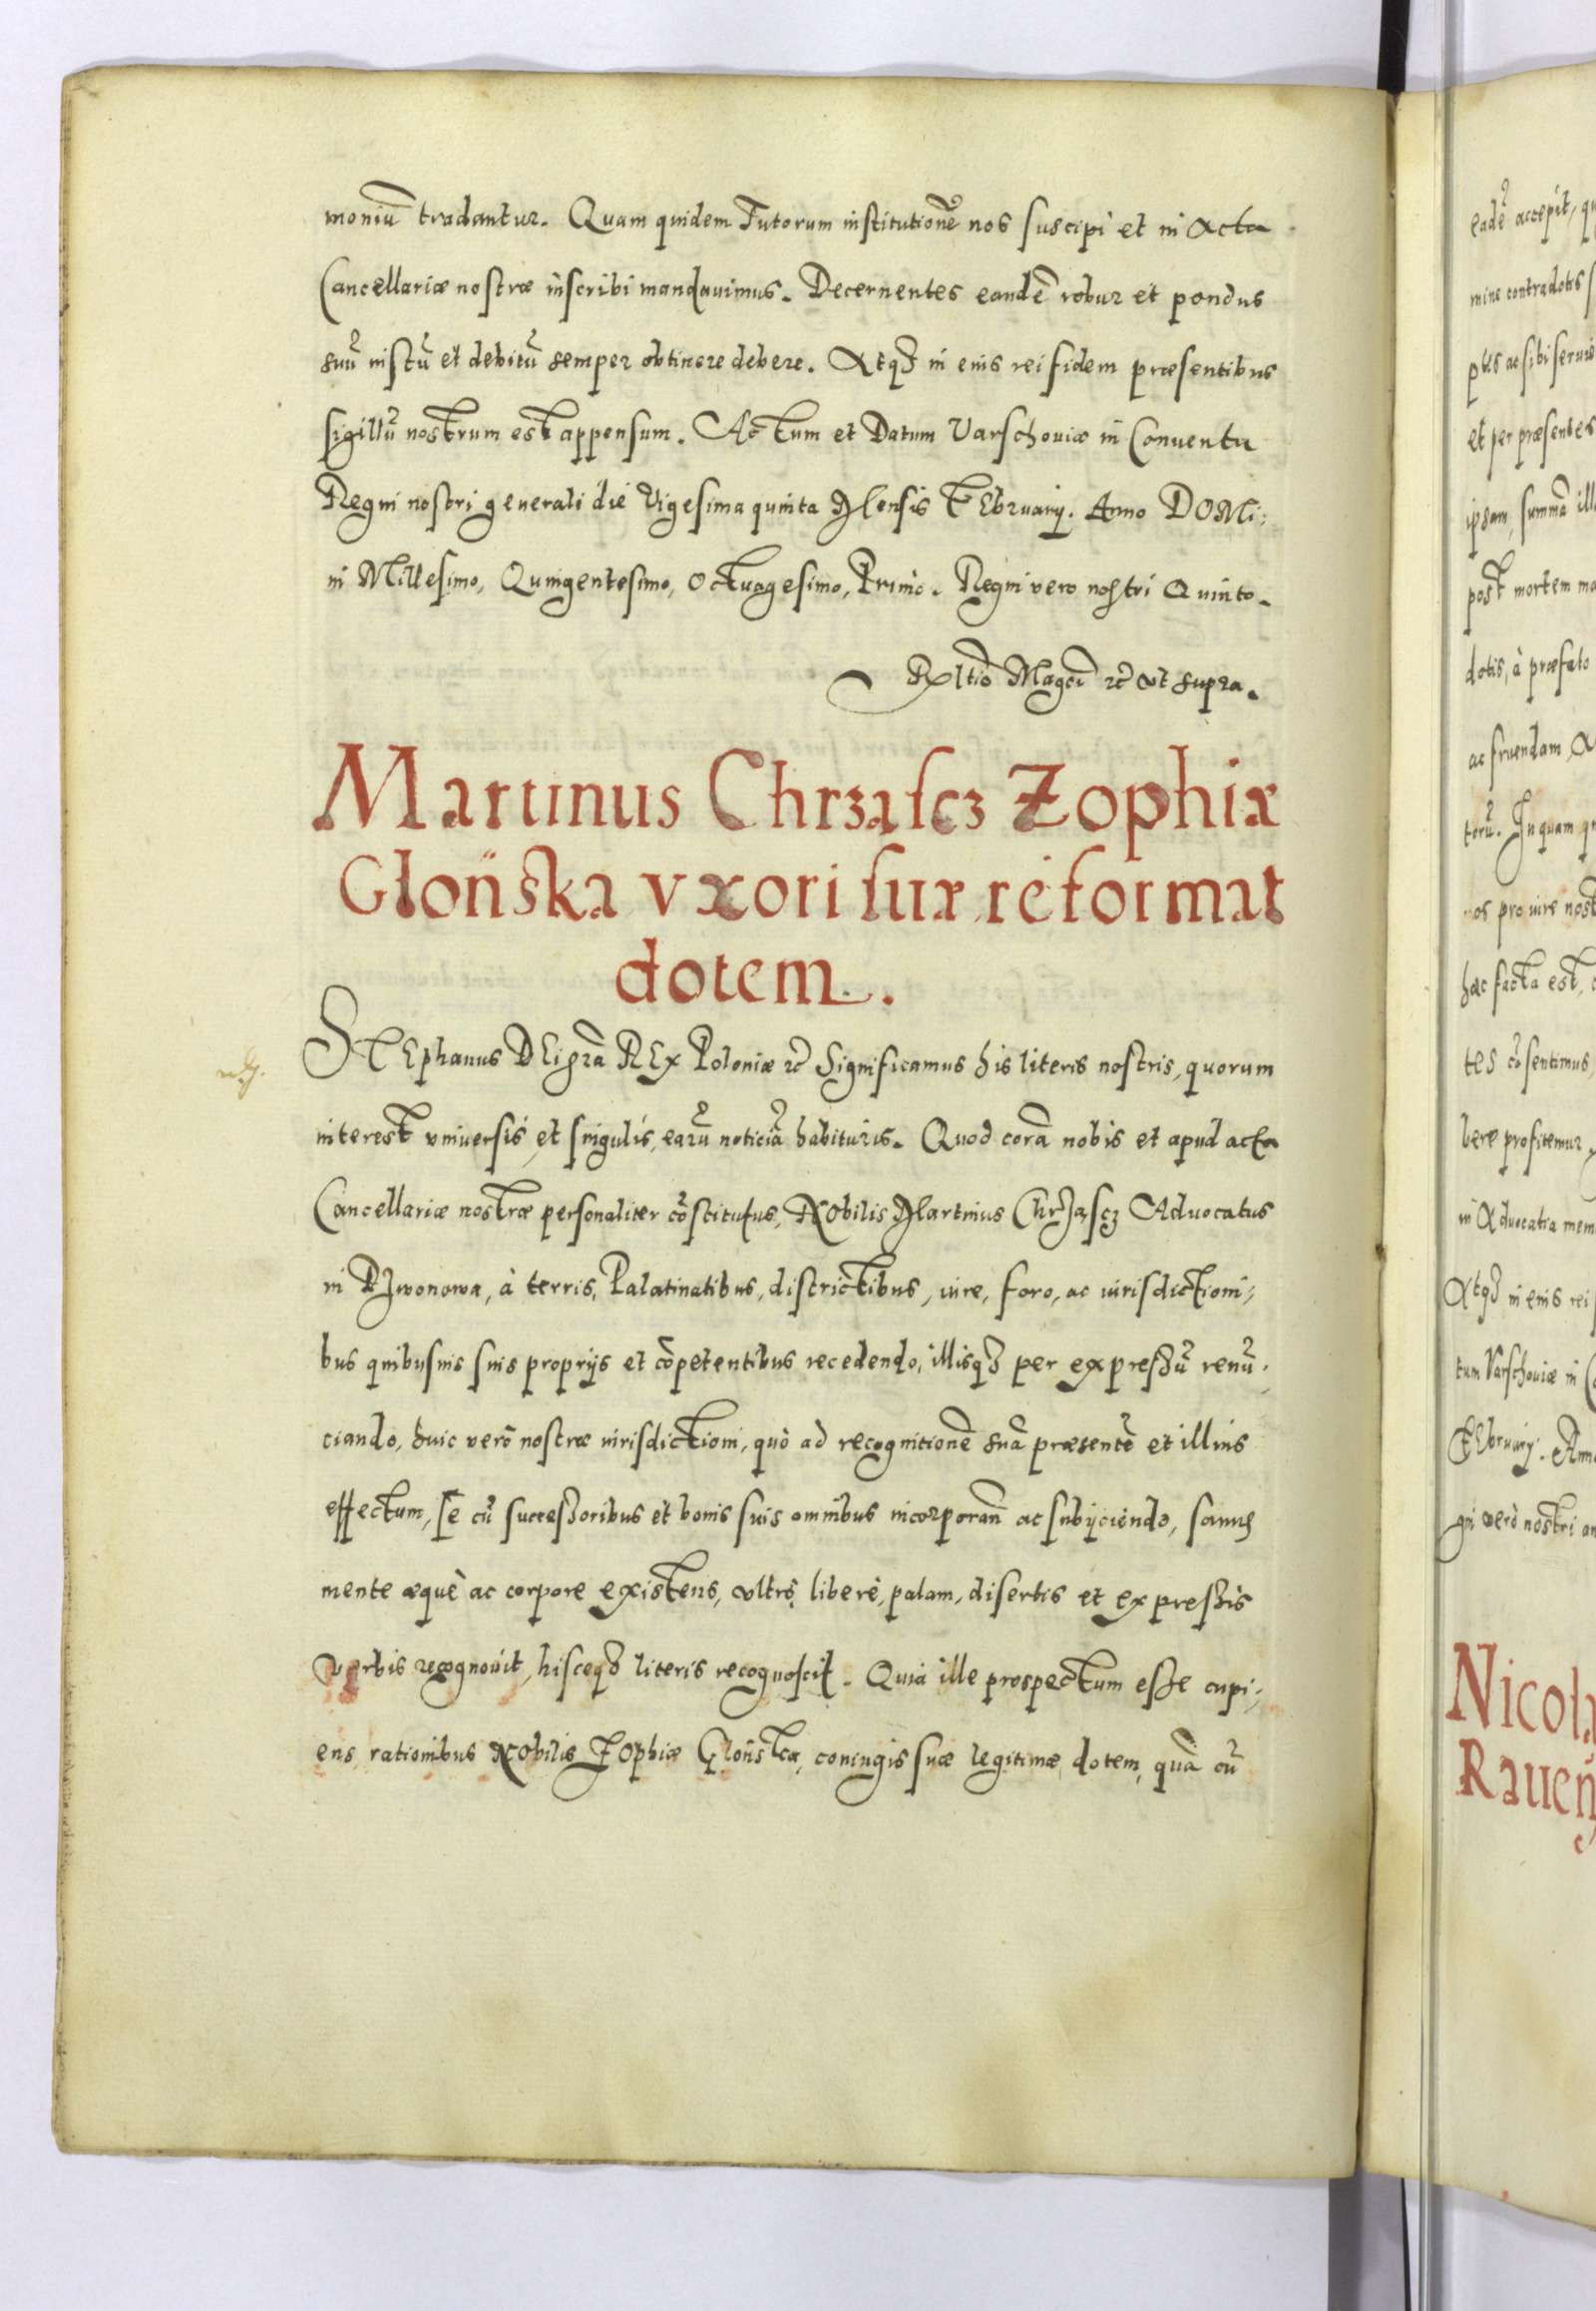 moniũ tradantur. Quam quidem Tutorum institutionẽ nos suscipi et in Acta
Cancellariæ nostræ inscribi mandauimus. Decernentes eandẽ robur et pondus
suũ iustũ et debitũ semper obtinere debere. Atq₃ in eius rei fidem præsentibus
sigillũ nostrum est appensum. Actum et Datum Varschouiæ in Conuentu
Regni nostri generali die Vigesima quinta Mensis FEbruarij. Anno DOMi:
ni Millesimo, Quingentesimo, Octuagesimo, Primo. Regni vero nostri Quinto.
Rltio Magci ꝛc̃ vt supra.
Martinus Chrząscz Zophiæ
Glon̈ska vxori suæ reformat
dotem.
STEphanus DEi grã REx Poloniæ ꝛc̃ Significamus his literis nostris, quorum
interest vniuersis, et singulis, earũ noticiã habituris. Quod corã nobis et apud acta
Cancellariæ nostræ personaliter cõstitutus, NObilis Martinus Chrząscz Aduocatus
in Rzwonowa, à terris, Palatinatibus, districtibus, iure, foro, ac iurisdictioni:
bus quibusuis suis proprijs et cõpetentibus recedendo, illisq₃ per expressũ renũ:
ciando, huic verò nostræ iurisdictioni, quò ad recognitionẽ suã præsentẽ et illius
effectum, se cũ successoribus et bonis suis omnibus incorporañ ac subijciendo, sanus
mente æquè ac corpore existens, vltrò, liberè, palam, disertis et expressis
verbis recognouit, hisceq₃ literis recognoscit. Quia ille prospectum esse cupi:
ens, rationibus NObilis ZOphiæ Glon̈ska, coniugis suæ legitimæ, dotem, quã cũ
eadẽ accepit, qu
mine contradotis
et per præsentes
ipsam, summã ill
post mortem ma
dotis, à præfato
ac fruendam, A
torũ. In quam qu
nos pro iure nost
hæc facta est,
tes cõsentimus,
bere profitemur
in Aduocatia mem
Atq₃ in eius rei
tum Varschouiæ in
FEbruarij. Ann
gni verò nostri an
Nicola
Raueñ